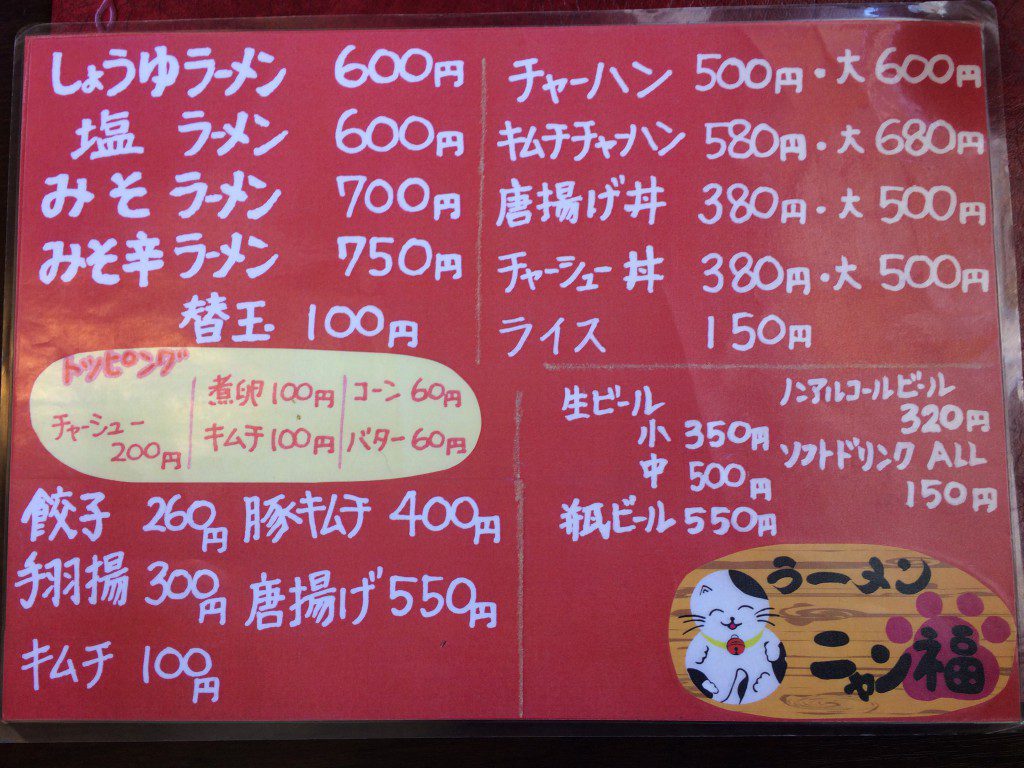 しょうゆラーメン 600円
塩 ラーメン 600円
みそ ラーメン 700円
みそ辛ラーメン 750円
替玉 100円
トッピング
チャーシュー 200円
煮卵 100円
キムチ 100円
コーン 60円
バター 60円
餃子 260円
手羽揚 300円
キムチ 100円
豚キムチ 400円
唐揚げ 550円
チャーハン 500円・大 600円
キムチチャーハン 580円・大 680円
唐揚げ丼 380円・大 500円
チャーシュー丼 380円・大 500円
ライス 150円
生ビール
小 350円
中 500円
瓶ビール 550円
ノンアルコールビール
320円
ソフトドリンク ALL
150円
ラーメン
ニャン福